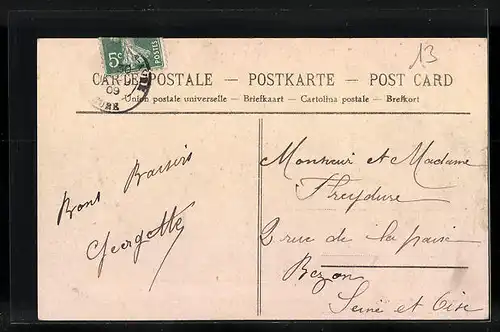 13
5c
POSTES
09
CARTE POSTALE — POSTKARTE — POST CARD
Union postale universelle — Briefkaart — Cartolina postale — Brefkort
Bons Baisers
Georgette
Monsieur et Madame
2 rue de la paix
Bezon
Seine et Oise